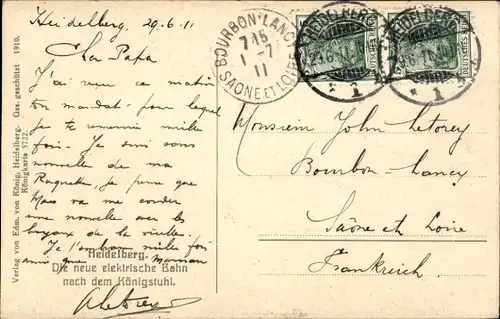 Heidelberg. 29.6.11
BOURBON-LANCY
7 45
1 - 7
11
SAONE ET LOIRE
HEIDELBERG
29.6.11
* 1
HEIDELBERG
* 1
DEUTSCHES REICH
Mon Papa
J'ai reçu ce matin
ton mandat pour lequel
je te remercie mille
fois. Je suis sans
nouvelle de ma
Raquette, je pense que
une nouvelle avec les
boyaux de la vieille.
Je t'embrasse mille fois
ainsi que Maman
Monsieur John Letorey
Bourbon-Lancy
Saône et Loire
Frankreich.
Heidelberg.
Die neue elektrische Bahn
nach dem Königstuhl.
Verlag von Edm. von König, Heidelberg. Ges. geschützt 1910.
Königkarte 3722